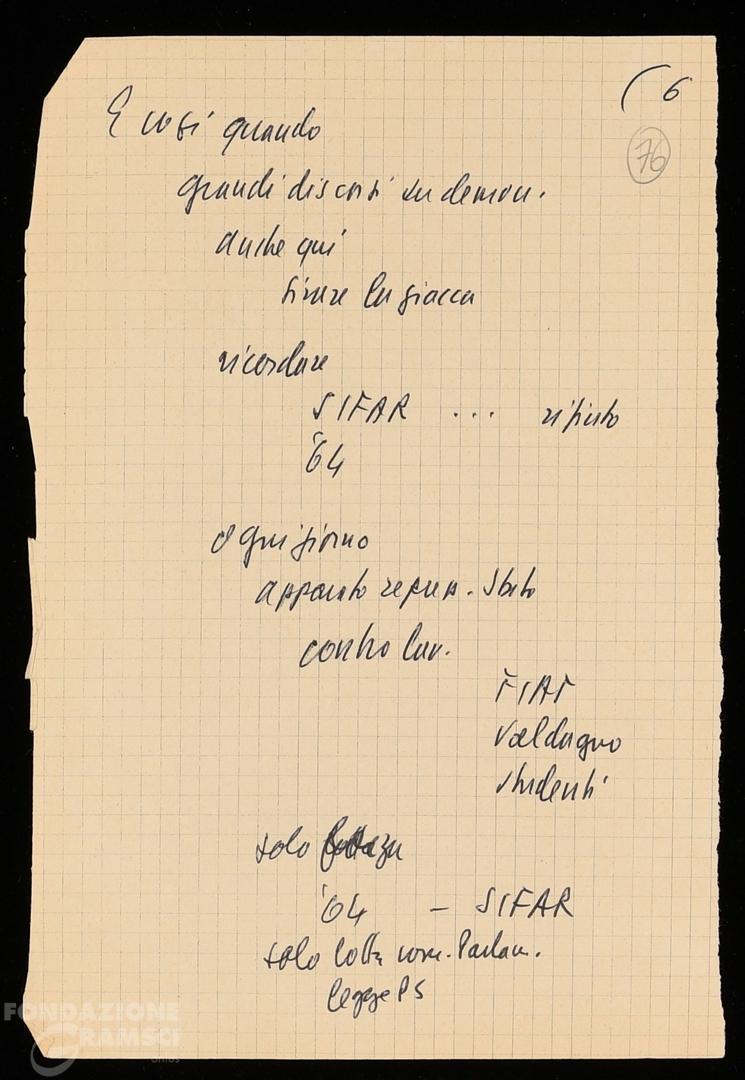 (6
76
E così quando
grandi discorsi su democr.
anche qui
tirare la giacca
ricordare
SIFAR ... rifiuto
'64
ogni giorno
apparato repress. Stato
contro lav.
FIAT
Valdagno
studenti
solo
'64 – SIFAR
solo lotta com. Parlam.
legge PS
FONDAZIONE
GRAMSCI
onlus